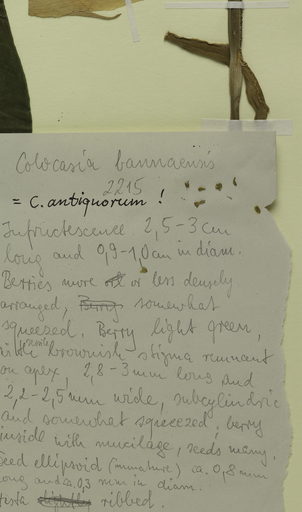 Colocasia bannaensis
2215
= C. antiquorum !
Infructescence 2,5-3 cm
long and 0,9-1,0 cm in diam.
Berries more or less densely
arranged, Berry somewhat
squeezed. Berry light green,
with brownish stigma remnant
on apex, 2,8-3 mm long and
2,2-2,5 mm wide, subcylindric
and somewhat squeezed, berry
inside with mucilage, seeds many.
Seed ellipsoid (immature) ca. 0,8 mm
long and ca. 0,3 mm in diam.
testa ribbed.